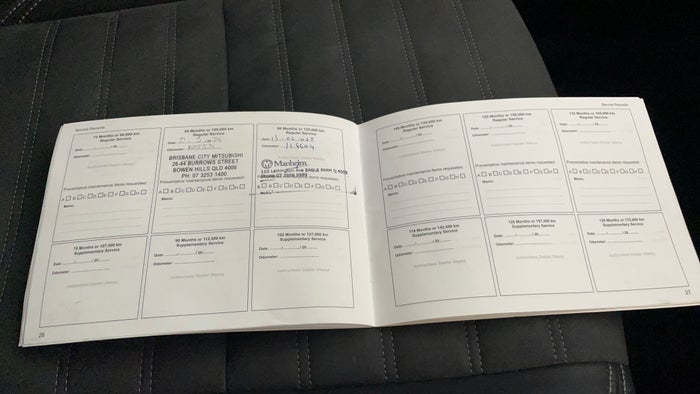 Service Records
72 Months or 90,000 km
Regular Service
Date: / /20
Odometer:
Authorised Dealer Stamp
Preventative maintenance items requested:
A B C D E F G H
Memo:
84 Months or 105,000 km
Regular Service
Date:
Odometer:
BRISBANE CITY MITSUBISHI
26-44 BURROWS STREET
BOWEN HILLS QLD 4006
PH: 07 3253 1400
Preventative maintenance items requested:
A B C D E F G H
Memo:
96 Months or 120,000 km
Regular Service
Date:
Odometer:
Manheim
EAGLE FARM Q 4009
A B C D E F G H
Memo:
78 Months or 97,500 km
Supplementary Service
Date: / /20
Odometer:
Authorised Dealer Stamp
90 Months or 112,500 km
Supplementary Service
Date: / /20
Odometer:
Authorised Dealer Stamp
102 Months or 127,500 km
Supplementary Service
Date: / /20
Odometer:
Authorised Dealer Stamp
26
Service Records
108 Months or 135,000 km
Regular Service
Date: / /20
Odometer:
Authorised Dealer Stamp
Preventative maintenance items requested:
A B C D E F G H
Memo:
120 Months or 150,000 km
Regular Service
Date: / /20
Odometer:
Authorised Dealer Stamp
Preventative maintenance items requested:
A B C D E F G H
Memo:
Regular Service
Date: / /20
Odometer:
Authorised Dealer Stamp
Preventative maintenance items requested:
A B C D E F G H
Memo:
114 Months or 142,500 km
Supplementary Service
Date: / /20
Odometer:
Authorised Dealer Stamp
126 Months or 157,500 km
Supplementary Service
Date: / /20
Odometer:
Authorised Dealer Stamp
Supplementary Service
Date: / /20
Odometer:
Authorised Dealer Stamp
27